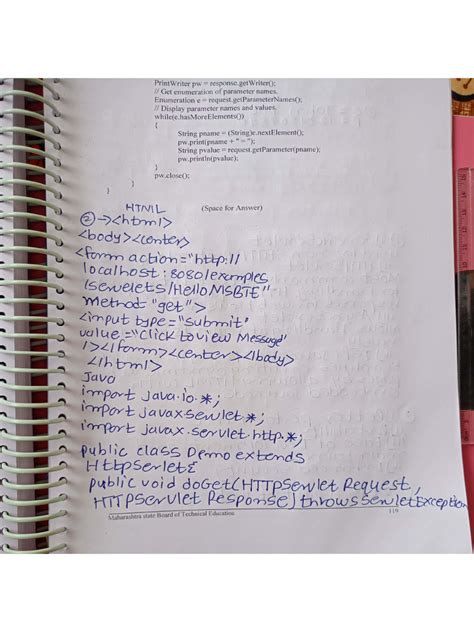 PrintWriter pw = response.getWriter();
// Get enumeration of parameter names.
Enumeration e = request.getParameterNames();
// Display parameter names and values.
while(e.hasMoreElements())
{
String pname = (String)e.nextElement();
pw.print(pname + " = ");
String pvalue = request.getParameter(pname);
pw.println(pvalue);
}
pw.close();
}
}
HTML
(Space for Answer)
② → <html>
<body><center>
<form action="http://
localhost:8080/examples
/servelets/HelloMSBTE"
method="get">
<input type="submit"
value="Click to view Message"
/></form><center></body>
</html>
Java
import java.io.*;
import javax.servlet.*;
import javax.servlet.http.*;
public class Demo extends
HttpServlet{
public void doGet(HTTPServlet Request,
HTTPServlet Response) throws ServletException
Maharashtra state Board of Technical Education
119